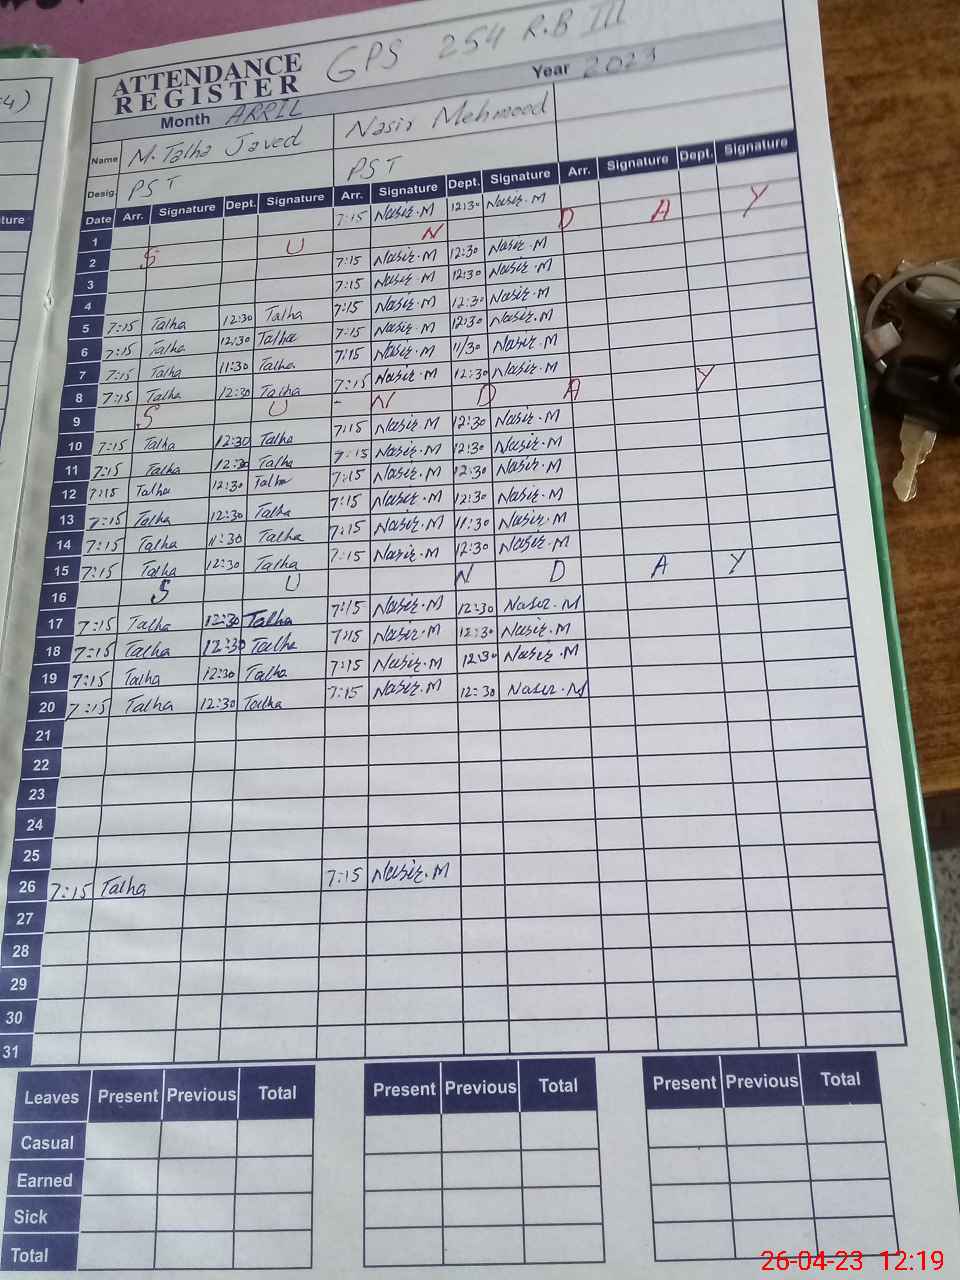 4)
ture
ATTENDANCE REGISTER GPS 254 R.B III
Month ARRIL Year 2023
Name M. Talha Javed Nasir Mehmood
Desig. PST PST
Date Arr. Signature Dept. Signature Arr. Signature Dept. Signature Arr. Signature Dept. Signature
1 7:15 Nasir.M 12:30 Nasir.M
2 S U N D A Y
3 7:15 Nasir.M 12:30 Nasir.M
4 7:15 Nasir.M 12:30 Nasir.M
5 7:15 Talha 12:30 Talha 7:15 Nasir.M 12:30 Nasir.M
6 7:15 Talha 12:30 Talha 7:15 Nasir.M 12:30 Nasir.M
7 7:15 Talha 11:30 Talha 7:15 Nasir.M 11/30 Nasir.M
8 7:15 Talha 12:30 Talha 7:15 Nasir.M 12:30 Nasir.M
9 S U - N D A Y
10 7:15 Talha 12:30 Talha 7:15 Nasir.M 12:30 Nasir.M
11 7:15 Talha 12:30 Talha 7:15 Nasir.M 12:30 Nasir.M
12 7:15 Talha 12:30 Talha 7:15 Nasir.M 12:30 Nasir.M
13 7:15 Talha 12:30 Talha 7:15 Nasir.M 12:30 Nasir.M
14 7:15 Talha 11:30 Talha 7:15 Nasir.M 11:30 Nasir.M
15 7:15 Talha 12:30 Talha 7:15 Nasir.M 12:30 Nasir.M
16 S U N D A Y
17 7:15 Talha 12:30 Talha 7:15 Nasir.M 12:30 Nasir.M
18 7:15 Talha 12:30 Talha 7:15 Nasir.M 12:30 Nasir.M
19 7:15 Talha 12:30 Talha 7:15 Nasir.M 12:30 Nasir.M
20 7:15 Talha 12:30 Talha 7:15 Nasir.M 12:30 Nasir.M
21
22
23
24
25
26 7:15 Talha 7:15 Nasir.M
27
28
29
30
31
Leaves Present Previous Total Present Previous Total Present Previous Total
Casual
Earned
Sick
Total
26-04-23 12:19